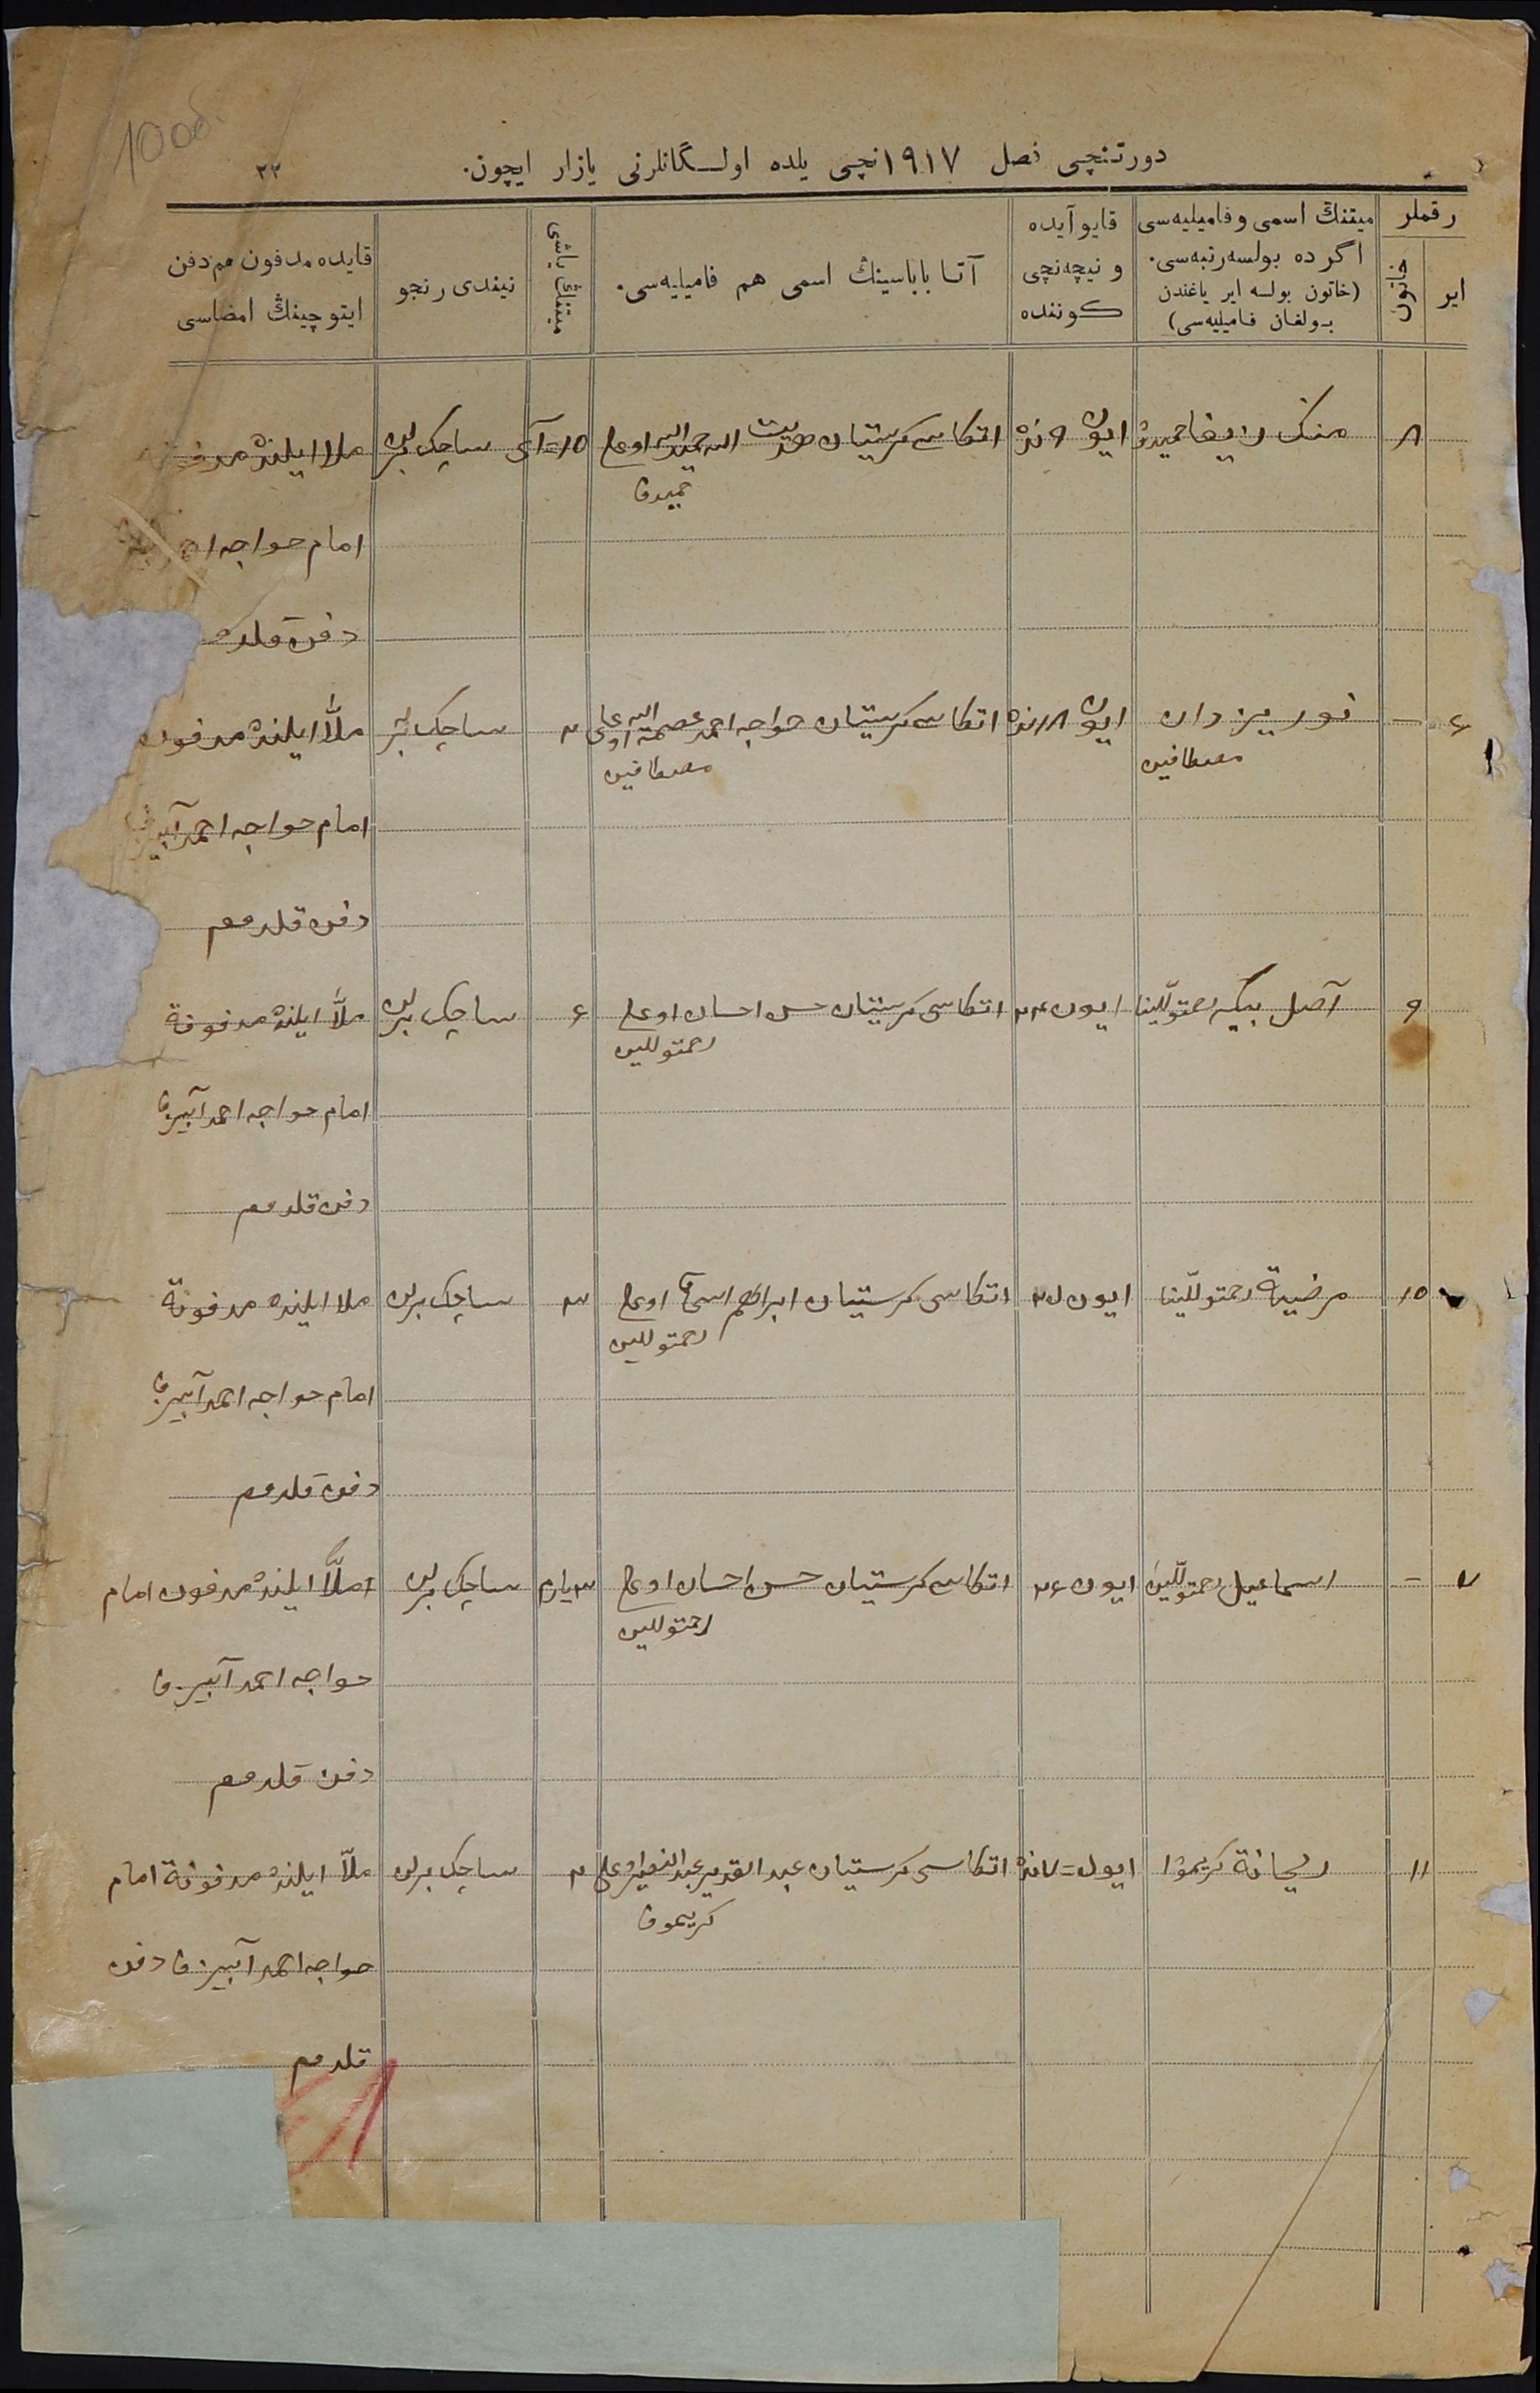 10 об.
دورتنچی فصل ۱۹۱۷نچی یلده اولـگانلرنی یازار ایچون.
۲۲
رقملر
ایر
خاتون
میتنڭ اسمی و فامیلیه‌سی
اگر ده بولسه رتبه‌سی.
(خاتون بولسه ایر یاغندن
بـولغان فـامیلیه‌سی)
قایو آیده
و نیچه‌نچی
كـوننده
آتـا بـاباسینڭ اسمی هم فامیلیه‌سی.
میتنڭ یاشی
نیندی رنجو
قایده مدفون هم دفن
ایتوچینڭ امضاسی
۸
ایون ۹ نده
اتكاسی كرستیان
اوغلی
حمیدف
۱۰=آی
ساچك برلن
ملا ایلنده مدفونه
امام حواجه
دفن قلدم
۶
–
نور یزدان
مصطافین
ایون ۱۸ نده
اتكاسی كرستیان حواجه احمد عصمة الله اوغلی
مصطافین
۲
ساچك برلن
ملّا ایلنده مدفون
امام حواجه احمد آبیزف
دفن قلدمم
۹
آصل بیكه رحمتوللینا
ایون ۲۴
اتكاسی كرستیان حسن احسان اوغلی
رحمتوللین
۶
ساچك برلن
ملّا ایلنده مدفونة
امام حواجه احمد آبیزف
دفن قلدمم
۱۰
مرضیة رحمتوللینا
ایون
اتكاسی كرستیان ابراهیم اسحاق اوغلی
رحمتوللین
۳
ساچك برلن
ملا ایلنده مدفونة
امام حواجه احمد آبیزف
دفن قلدمم
۷
–
اسماعیل رحمتوللین
ایون ۲۶
اتكاسی كرستیان حسن احسان اوغلی
رحمتوللین
۳ یارم
ساچك برلن
ملّا ایلنده مدفون امام
حواجه احمد آبیزف
دفن قلدمم
۱۱
ریحانة كریموا
ایول=۷ نده
اتكاسی كرستیان عبد القدیر عبد النصیر اوغلی
كریموف
۲
ساچك برلن
ملّا ایلنده مدفونة امام
حواجه احمد آبیزف دفن
قلدمم